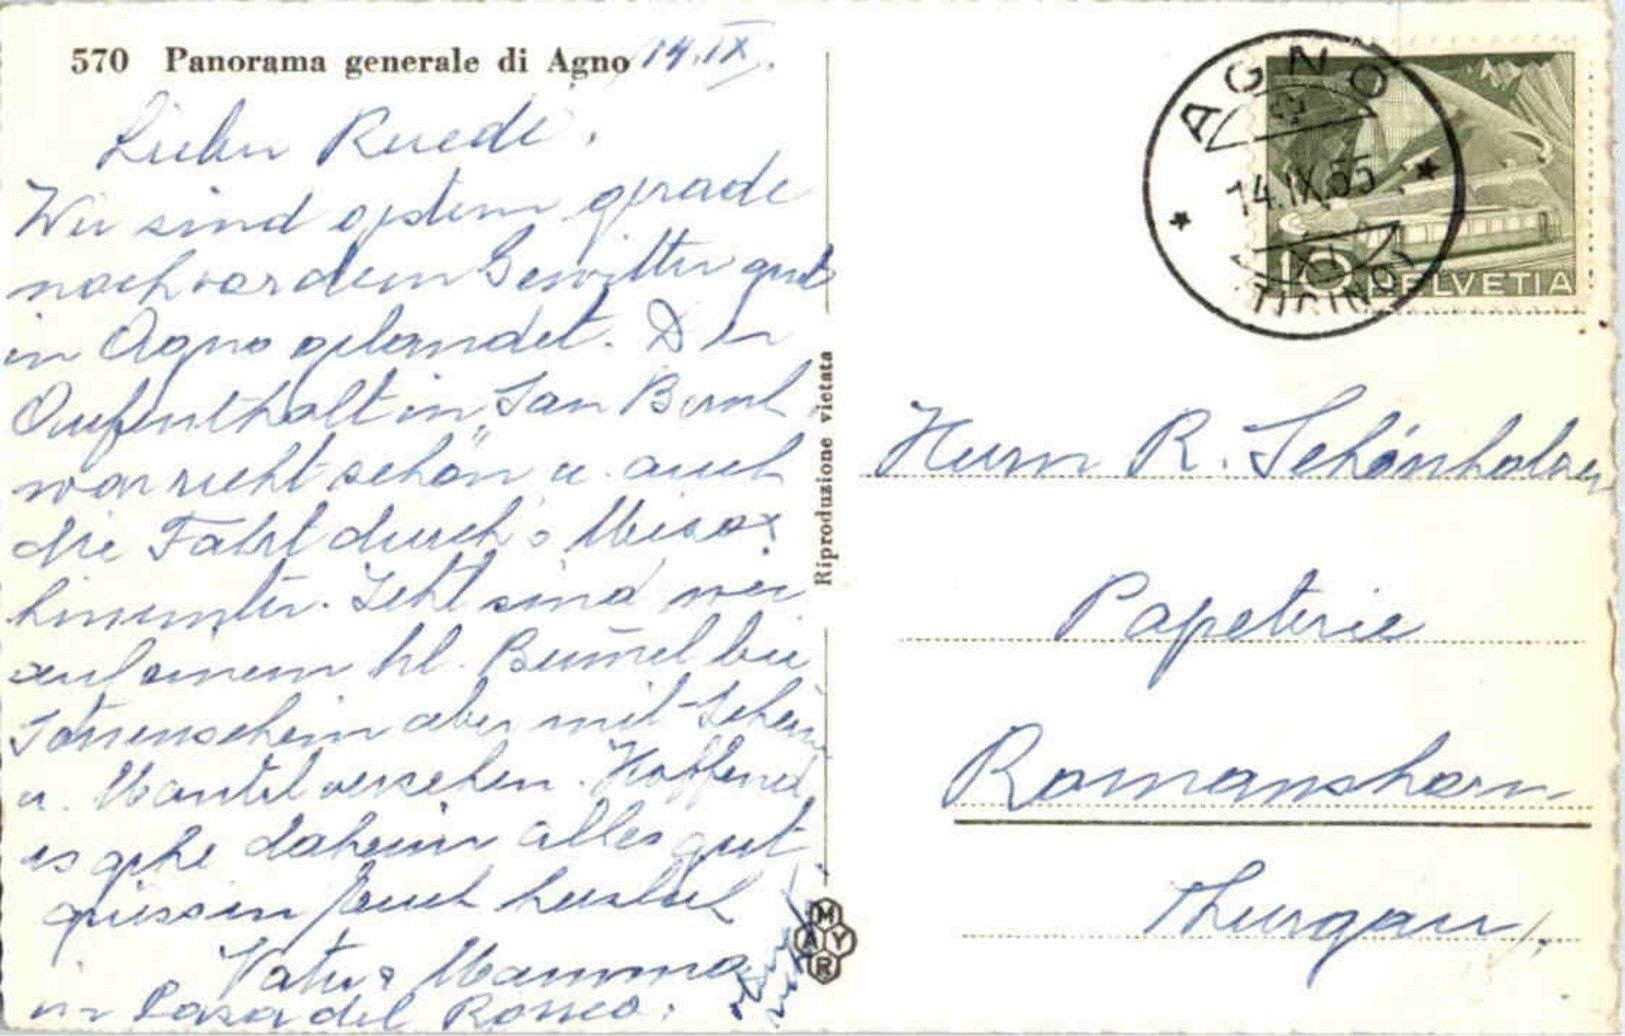 570 Panorama generale di Agno 14. IX.
Lieber Ruedi,
Wir sind gestern gerade
noch vor dem Gewitter gut
in Agno gelandet. Der
Aufenthalt in "San Bernh.
war recht schön u. auch
die Fahrt durch's Misox
hinunter. Jetzt sind wir
auf einem kl. Bum̄el bei
Son̄enschein aber mit Schirm
u. Mantel versehen. Hoffend
es gehe daheim alles gut
grüssen Euch herzlich
Vater & Mamma
in Casa del
Riproduzione vietata
MAYR
AGNO
14.IX.55
(TICINO)
10 HELVETIA
Herrn R. Schönholzer
Papeterie
Romanshorn
Thurgau.